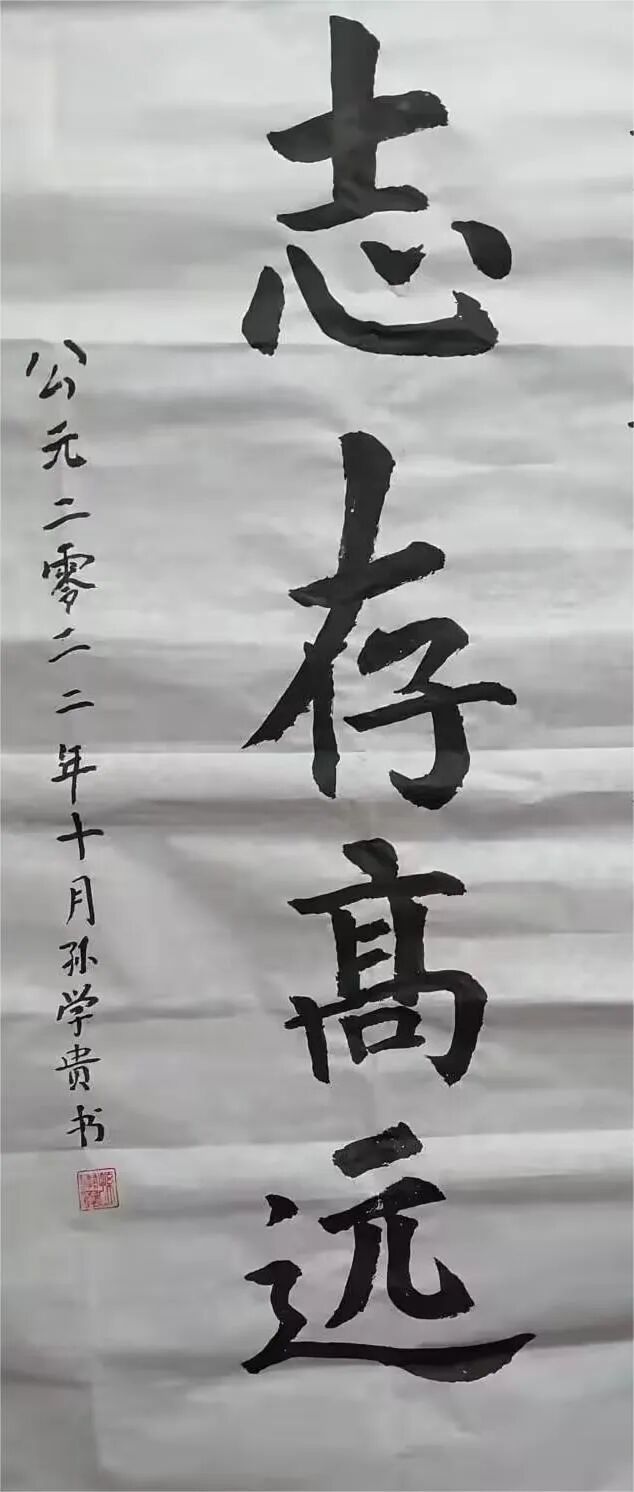 志存髙远
公元二零二二年十月孙学贵书